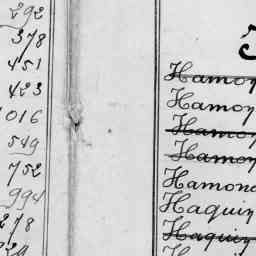 292
378
451
423
1016
549
752
994
278
Hamon
Hamon
Hamon
Hamon
Hamond
Haquin
Haquin